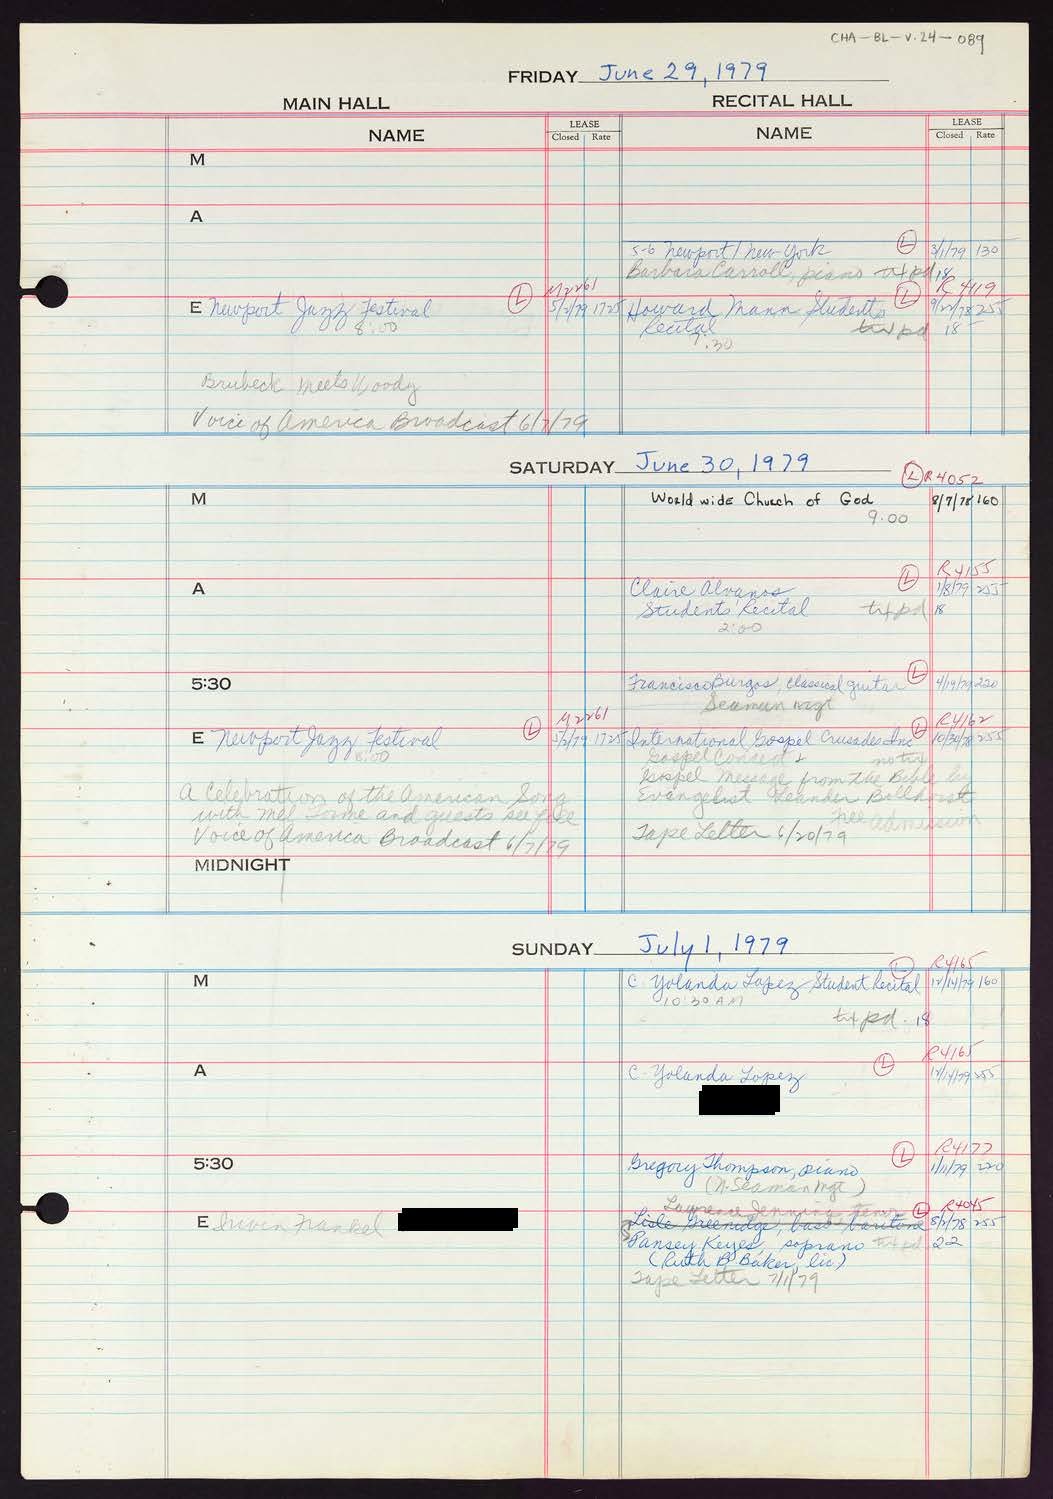 CHA-BL-V.24-089
FRIDAY June 29, 1979
MAIN HALL RECITAL HALL
NAME LEASE Closed Rate NAME LEASE Closed Rate
M
A
5-6 Newport/New York L 3/1/79 130
Barbara Carroll, piano txt pd 18
M2261 R4119
E Newport Jazz Festival L 5/2/79 1725 Howard Mann Students L 9/22/78 255
8:00 Recital txt pd 18
7:30
Brubeck Meets Woody
Voice of America Broadcast 6/7/79
SATURDAY June 30, 1979
L R4052
M World wide Church of God 8/7/78 160
9:00
L R4155
A Claire Alvanos 1/8/79 255
Students Recital txt pd 18
2:00
5:30 Francisco Burgos, classical guitar L 4/19/79 220
Seaman mgt
M2261 R4162
E Newport Jazz Festival L 5/2/79 1725 International Gospel Crusades Inc L 10/30/78 255
8:00 Gospel Concert &
Gospel Message from the Bible by
A Celebration of the American Song Evangelist Leander
with Mel Torme and guests see file free admission
Voice of America Broadcast 6/7/79 Tape Letter 6/20/79
MIDNIGHT
SUNDAY July 1, 1979
L R4165
M C. Yolanda Lopez Student Recital 12/14/79 160
10:30 AM
txt pd. 18
L R4165
A C. Yolanda Lopez 12/14/79 255
L R4177
5:30 Gregory Thompson, piano 1/11/79 220
(N. Seaman Mgt)
Lawrence Jennings tenor L R4045
E Irwin Frankel Lisle Greenidge, bass baritone 8/1/78 255
Pansey Keyes, soprano txt pd 22
(Ruth B Baker, lic)
Tape Letter 7/1/79